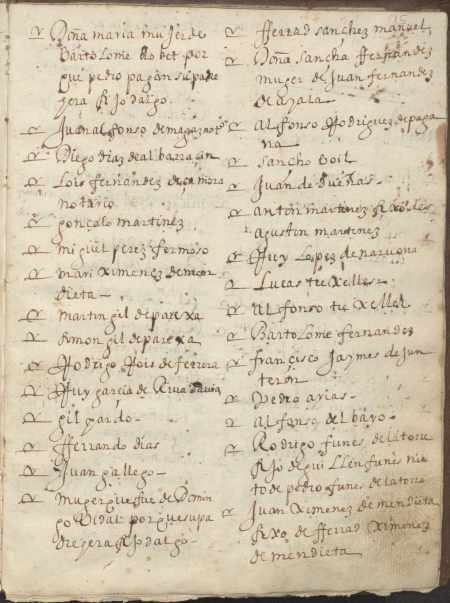 Doña maria mujer de
Bartolome Robet por
que pedro pagan su padre
yera hijodalgo.
Juan alfonso de magazo
Diego diaz de albarracin
Lois fernandez de çamora
notario
gonçalo martinez
miguel perez fermoso
mari Ximenez de mon
dieta
martin gil de parexa
Remon gil de parexa
Rodrigo Rois de ferrera
Ruy garcia de
gil pardo
fferrando dias
Juan gallego
muger que fue de Domin
go Vidal porque su pa
dre yera hijodalgo
fferrad sanchez manuel
Doña sancha fernandez
muger de Juan fernandez
de ayala
Alfonso Rodriguez de paga
na
sancho boil
Juan de Dueñas
anton martinez fixo de
agustin martinez
Ruy Lopez de
Lucas tuxelles
Alfonso tuxellel
Bartolome fernandez
francisco Jaymes de Jun
teron
Pedro arias
Alfonso del bayo
Rodrigo funes de la torre
fijo de guillen funes nie
to de pedro funes de la torre
Juan Ximenez de mendieta
fixo de ferrad Ximenez
de mendieta